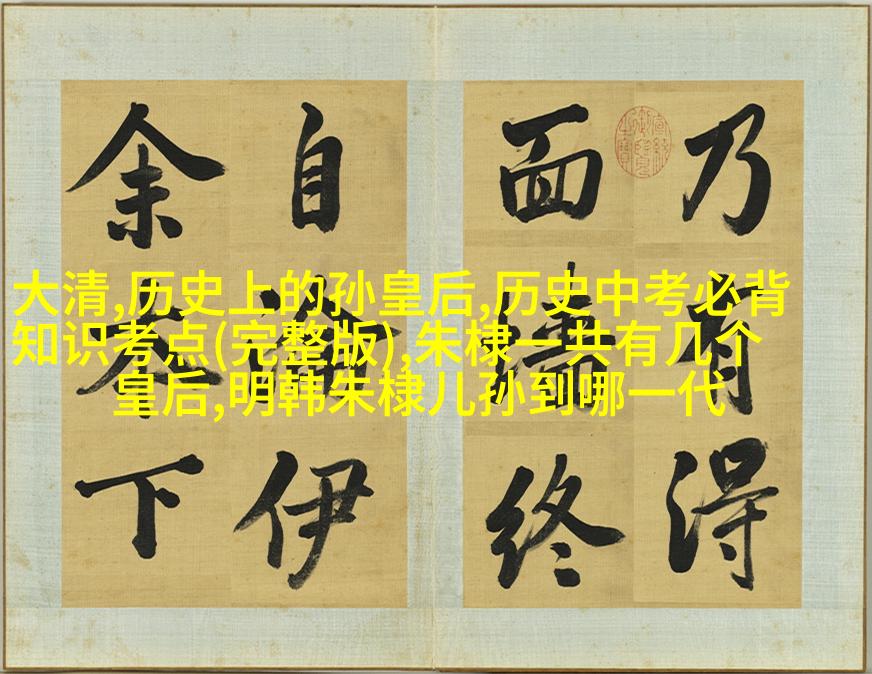 大清,历史上的孙皇后,历史中考必背
知识考点(完整版),朱棣一共有几个
皇后,明韩朱棣儿孙到哪一代
乃有得
面墙终
自伊
余下